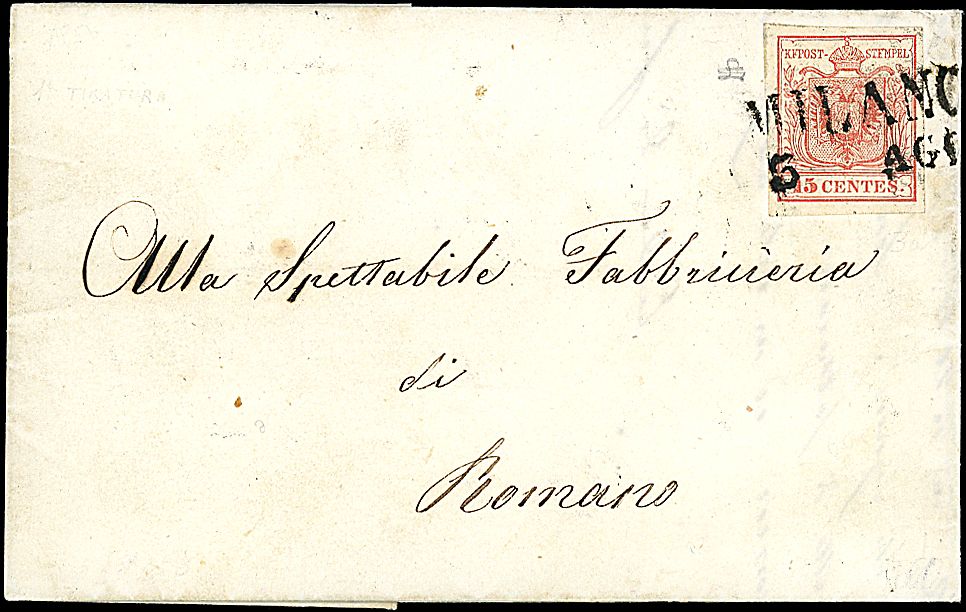 1ª TIRATURA
KKPOST-STEMPEL
MILANO
5 AGO
15 CENTES.
Alla Spettabile Fabbricieria
di
Romano